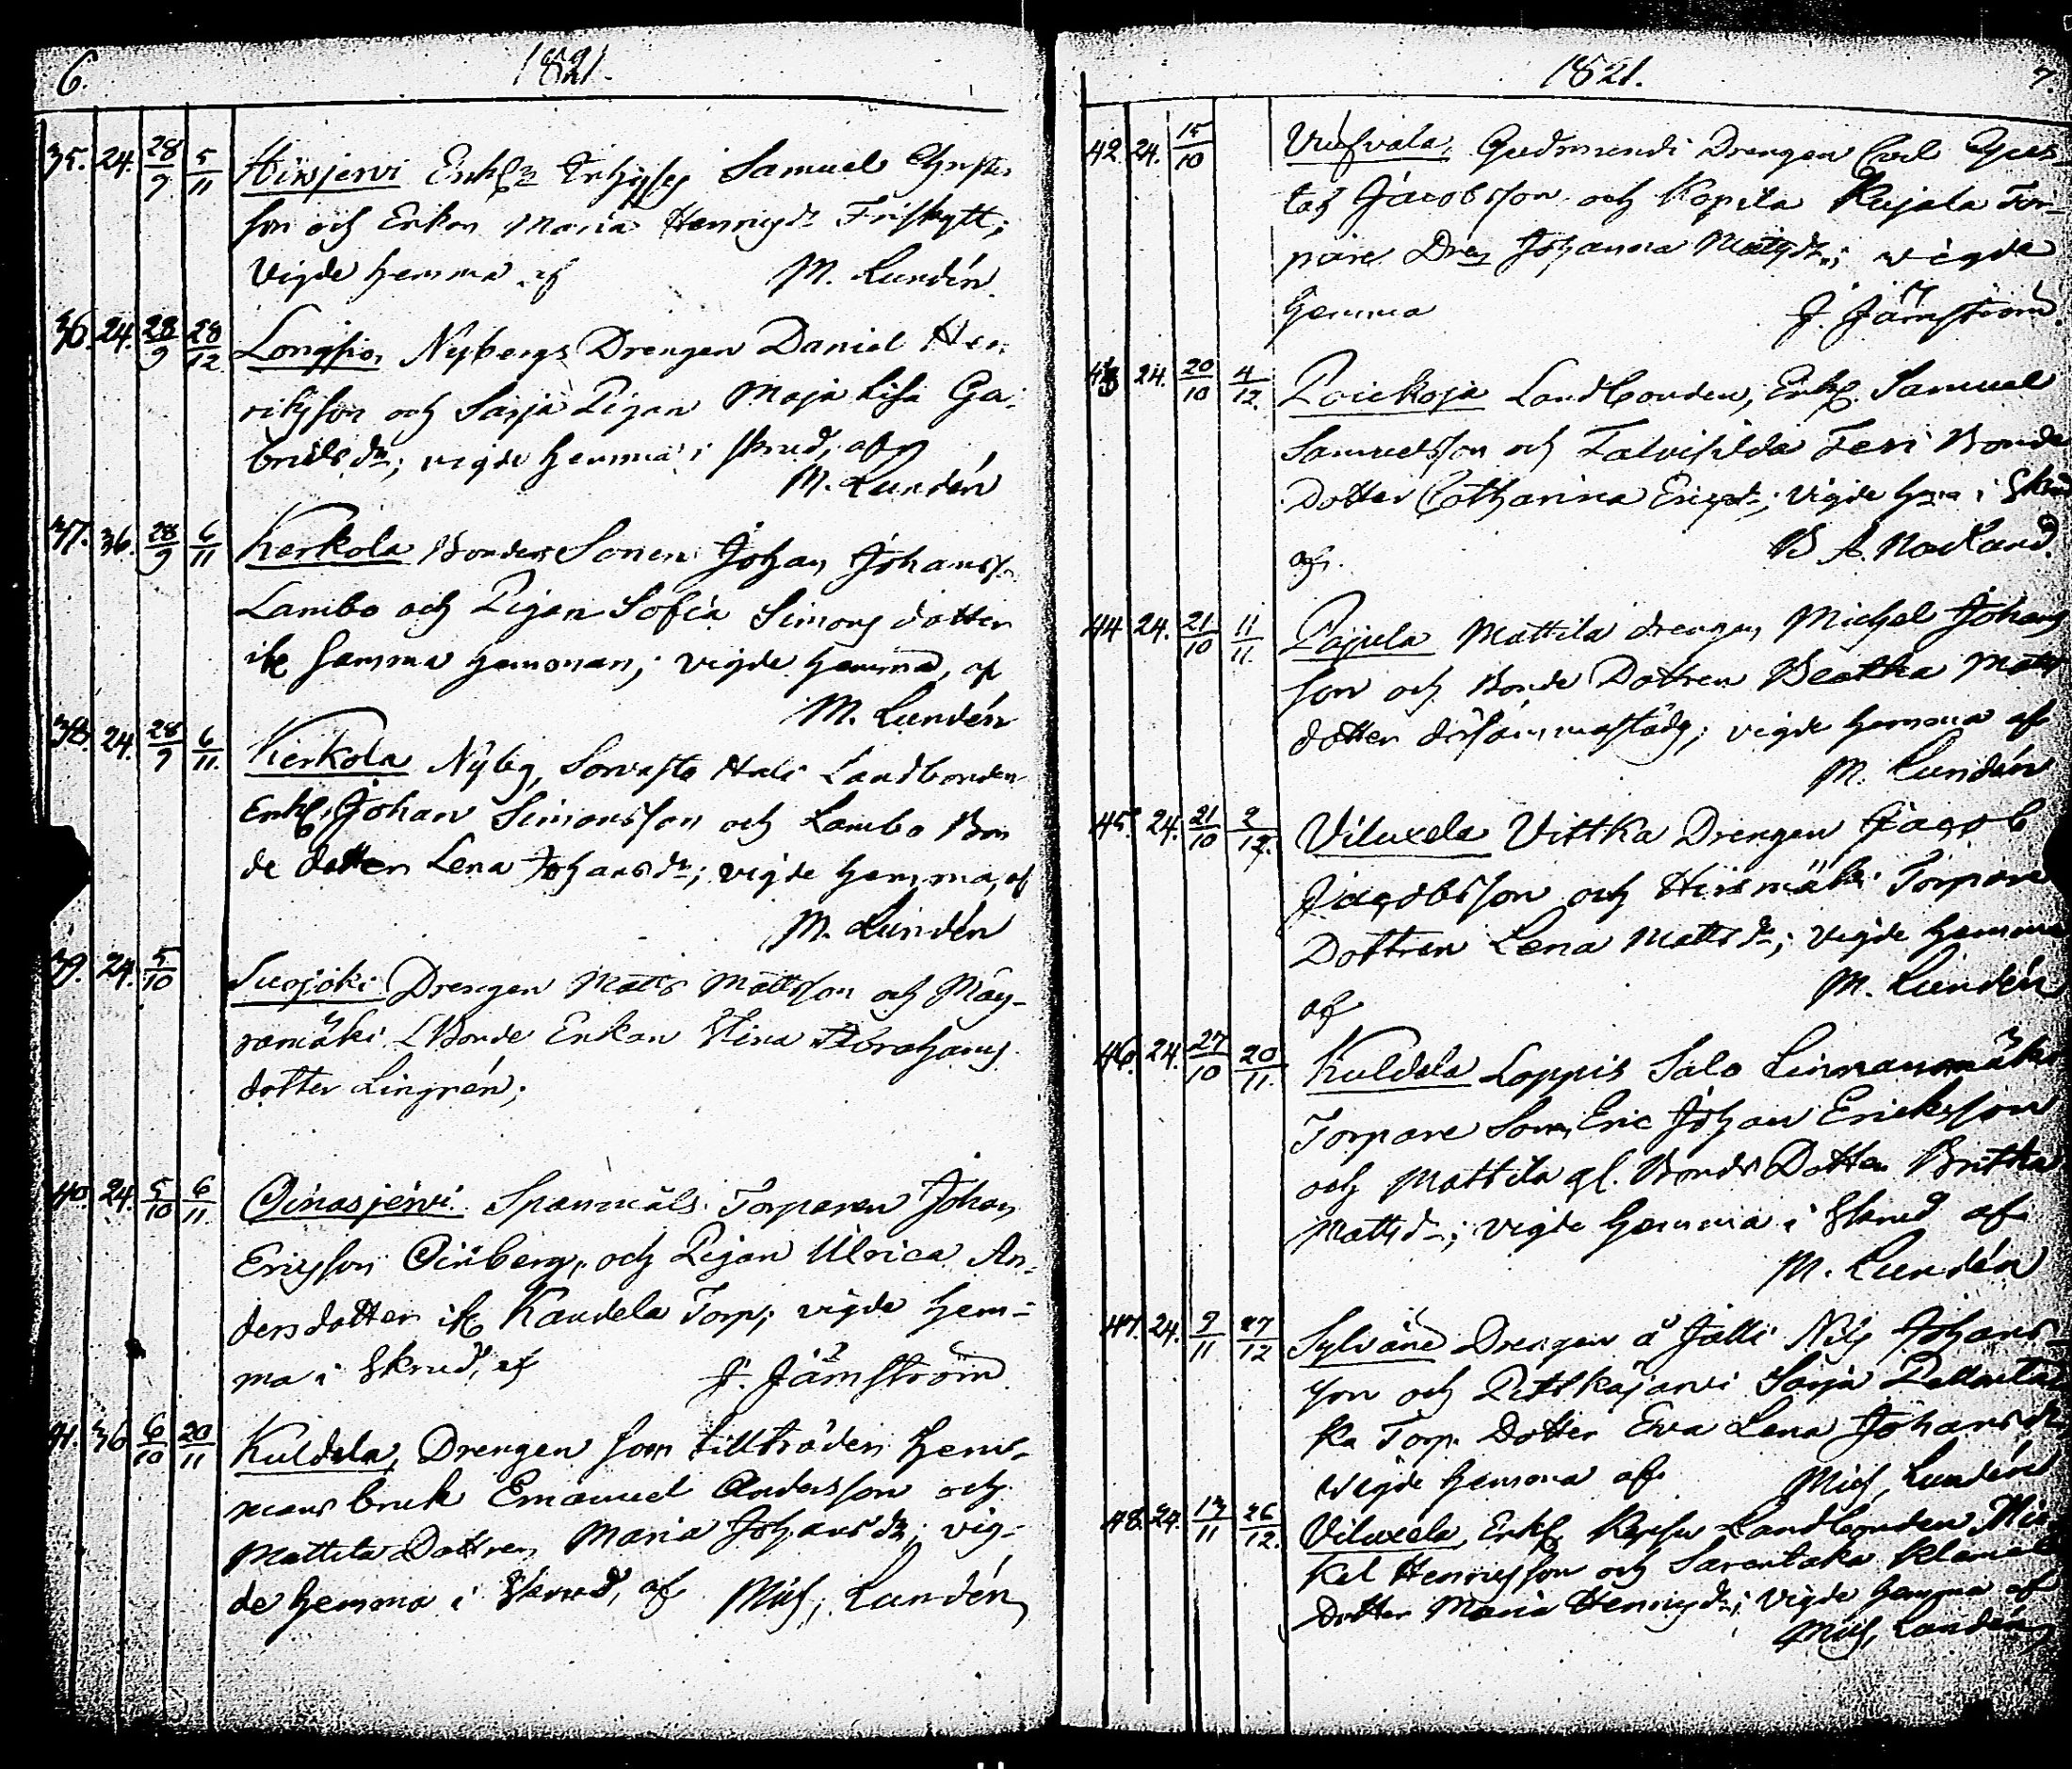 6. 1821.
35. 24. 28/9 5/11 Hirsjervi Enkl. Samuel
son och Enkan Maria Henrigsdr
Vigde hemma af M. Lundén.
36. 24. 28/9 28/12 Nybergs Drengen Daniel Hen
rikson och Sarja Pigan Maja Lisa Ga-
briels dr; vigde hemma i skrud, af
M. Lundén
37. 36. 28/9 6/11 Kerkola Bonde Sonen Johan Johanss.
Lambo och Pigan Sofia Simons dotter
ifr. samma hemman; vigde hemma, af
M. Lundén
38. 24. 28/9 6/11. Kerkola Nybg, Landbonden
Enkl. Johan Simonsson och Lambo Bon
de dotter Lena Johansdr; vigde hemma, af
M. Lundén
39. 24. 5/10 Suojoki Drengen Matts Mattsson och Mäy-
ramäki LBonde Enkan Stina Abrahams
dotter Lingrén;
40. 24. 5/10 6/11 Oinasjervi Spannmåls Torparen Johan
Ericsson Oinberg, och Pigan Ulrica An-
dersdotter ifr. Kaudela Torp; vigde hem-
ma i Skrud, af J. Jämström
41. 36 6/10 20/11 Kuldela, Drengen som tillträder hem-
mans bruk Emanuel Andersson och
Mattila Dottren Maria Johansdr; vig-
de hemma i Skrud, af Mich. Lundén
1821. 7.
42. 24. 15/10 Gudmundi Drengen Carl Gus
taf Jacobsson och Kopila Kujala Tor-
pare Dr. Johanna Mattsdr; vigde
hemma J. Jämström.
43 24. 20/10 4/12. Poickoja Landbonden, Enkl. Samuel
Samuelsson och Talvisilda Teri Bonde
Dotter Catharina Ericsdr; vigde hma i Skrud
af. B A. Norlund.
44 24. 21/10 11/11. Pajula Mattila drengen Michel Johans
son och Bonde Dottren Beatha Matts
dotter dersammastäds; vigde hemma af
M. Lundén
45. 24. 21/10 2/12. Viluxela Vittka Drengen Jacob
Jacobsson och Hirsmäki Torpare
Dottren Lena Mattsdr; vigde hemma
af M. Lundén
46. 24. 27/10 20/11. Kuldela Loppis Salo Linnanmäki
Torpare Son, Eric Johan Ericksson
och Mattila gl. Bonde Dotter Britha
Mattsdr; vigde hemma i Skrud af
M. Lundén
47. 24. 9/11 27/12 Sylväne Drengen å Jalli Nils Johans-
son och Pitkäjärvi Sarja
ka Torp. Dotter Eva Lena Johansdr
vigde hemma af Mich. Lundén
48. 24. 13/11 26/12. Viluxela, Enkl. Landbonden Mic
kel Henricsson och Sarentaka
Dotter Maria Henricsdr; vigde hemma af
Mich, Lundén